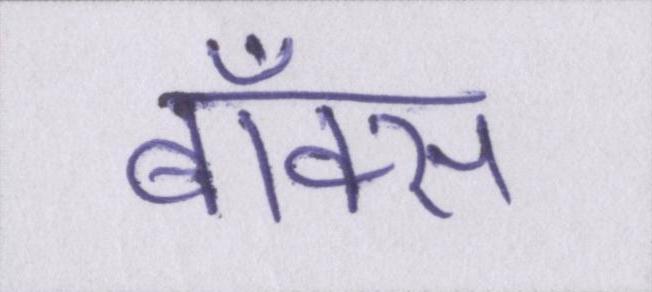 बाँक्स